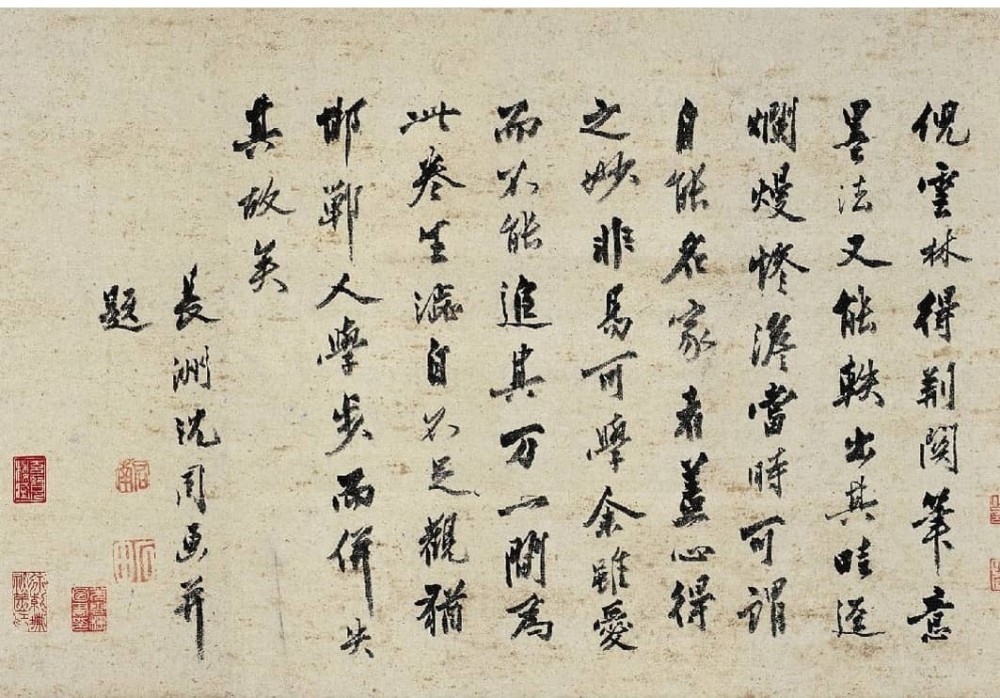 倪雲林得荆関筆意
墨法又能軼出其畦逕
爛熳慘澹當時可謂
自能名家者蓋心得
之妙非易可學余雖愛
而不能追其万一間為
此卷生澁自不足觀猶
邯鄲人學步而併失
其故矣
長洲沈周画并
題